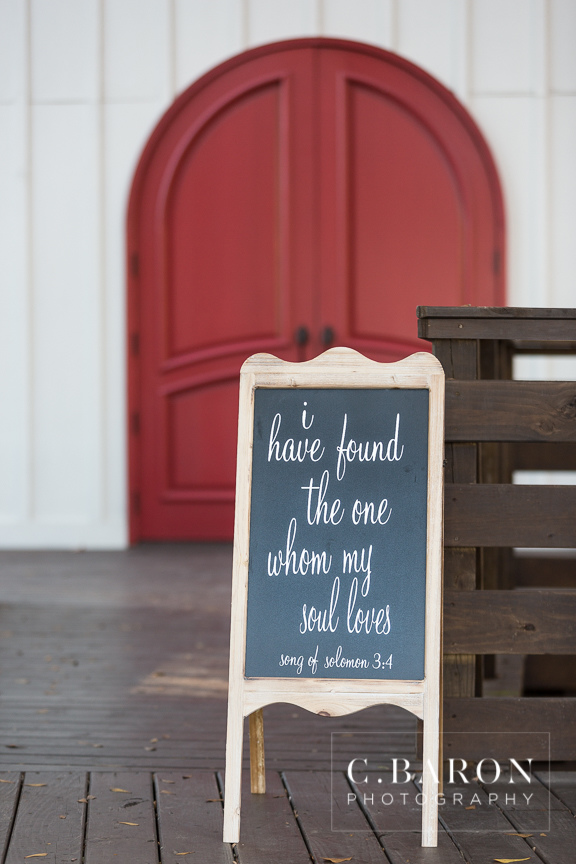 i
have found
the one
whom my
soul loves
song of solomon 3:4
C.BARON
PHOTOGRAPHY